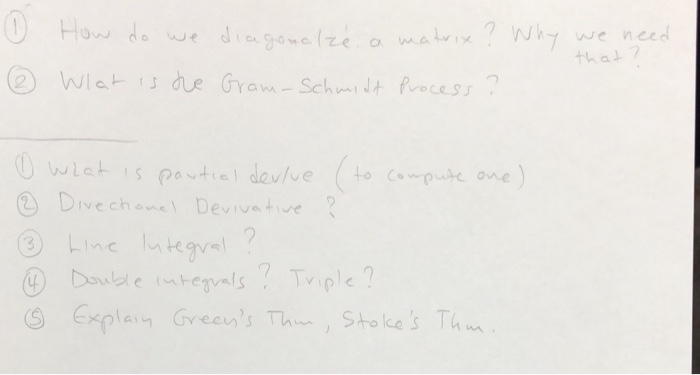 ① How do we diagonalze a matrix? Why we need
that?
② What is the Gram-Schmidt Process?
① What is partial derive (to compute one)
② Directional Derivative?
③ Line Integral?
④ Double integrals? Triple?
⑤ Explain Green's Thm, Stoke's Thm.